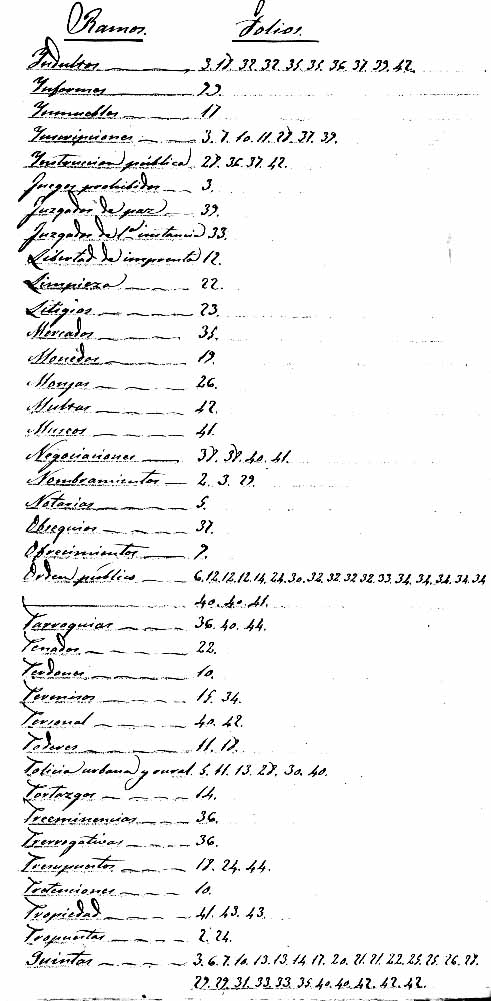 Ramos. Folios.
Indultos 3. 17. 32. 32. 35. 35. 36. 37. 39. 42.
Informes 29.
Inmuebles 17
Inscripciones 3. 7. 10. 11. 28. 37. 39.
Instruccion pública 28. 36. 37. 42.
Juegos prohibidos 3.
Juzgados de paz 39.
Juzgados de 1ª instancia 33.
Libertad de imprenta 12.
Limpieza 22.
Litigios 23.
Mercados 35.
Monedas 19.
Monjas 26.
Multas 42.
Museos 41.
Negociaciones 38. 38. 40. 41.
Nombramientos 2. 3. 29.
Notarias 5.
Obsequios 37.
Ofrecimientos 7.
Orden público 6. 12. 12. 12. 14. 24. 30. 32. 32. 32. 32. 33. 34. 34. 34. 34. 34
40. 40. 41.
Parroquias 36. 40. 44.
Penados 22.
Perdones 10.
Permisos 15. 34.
Personal 40. 42.
Poderes 11. 18.
Policia urbana y rural 5. 11. 13. 28. 30. 40.
Portazgos 14.
Preeminencias 36.
Prerrogativas 36.
Presupuestos 18. 24. 44.
Pretenciones 10.
Propiedad 41. 43. 43.
Propuestas 2. 24.
Quintas 3. 6. 7. 10. 13. 13. 14. 17. 20. 21. 21. 22. 25. 25. 26. 28.
29. 29. 31. 33. 33. 35. 40. 40. 42. 42. 42.